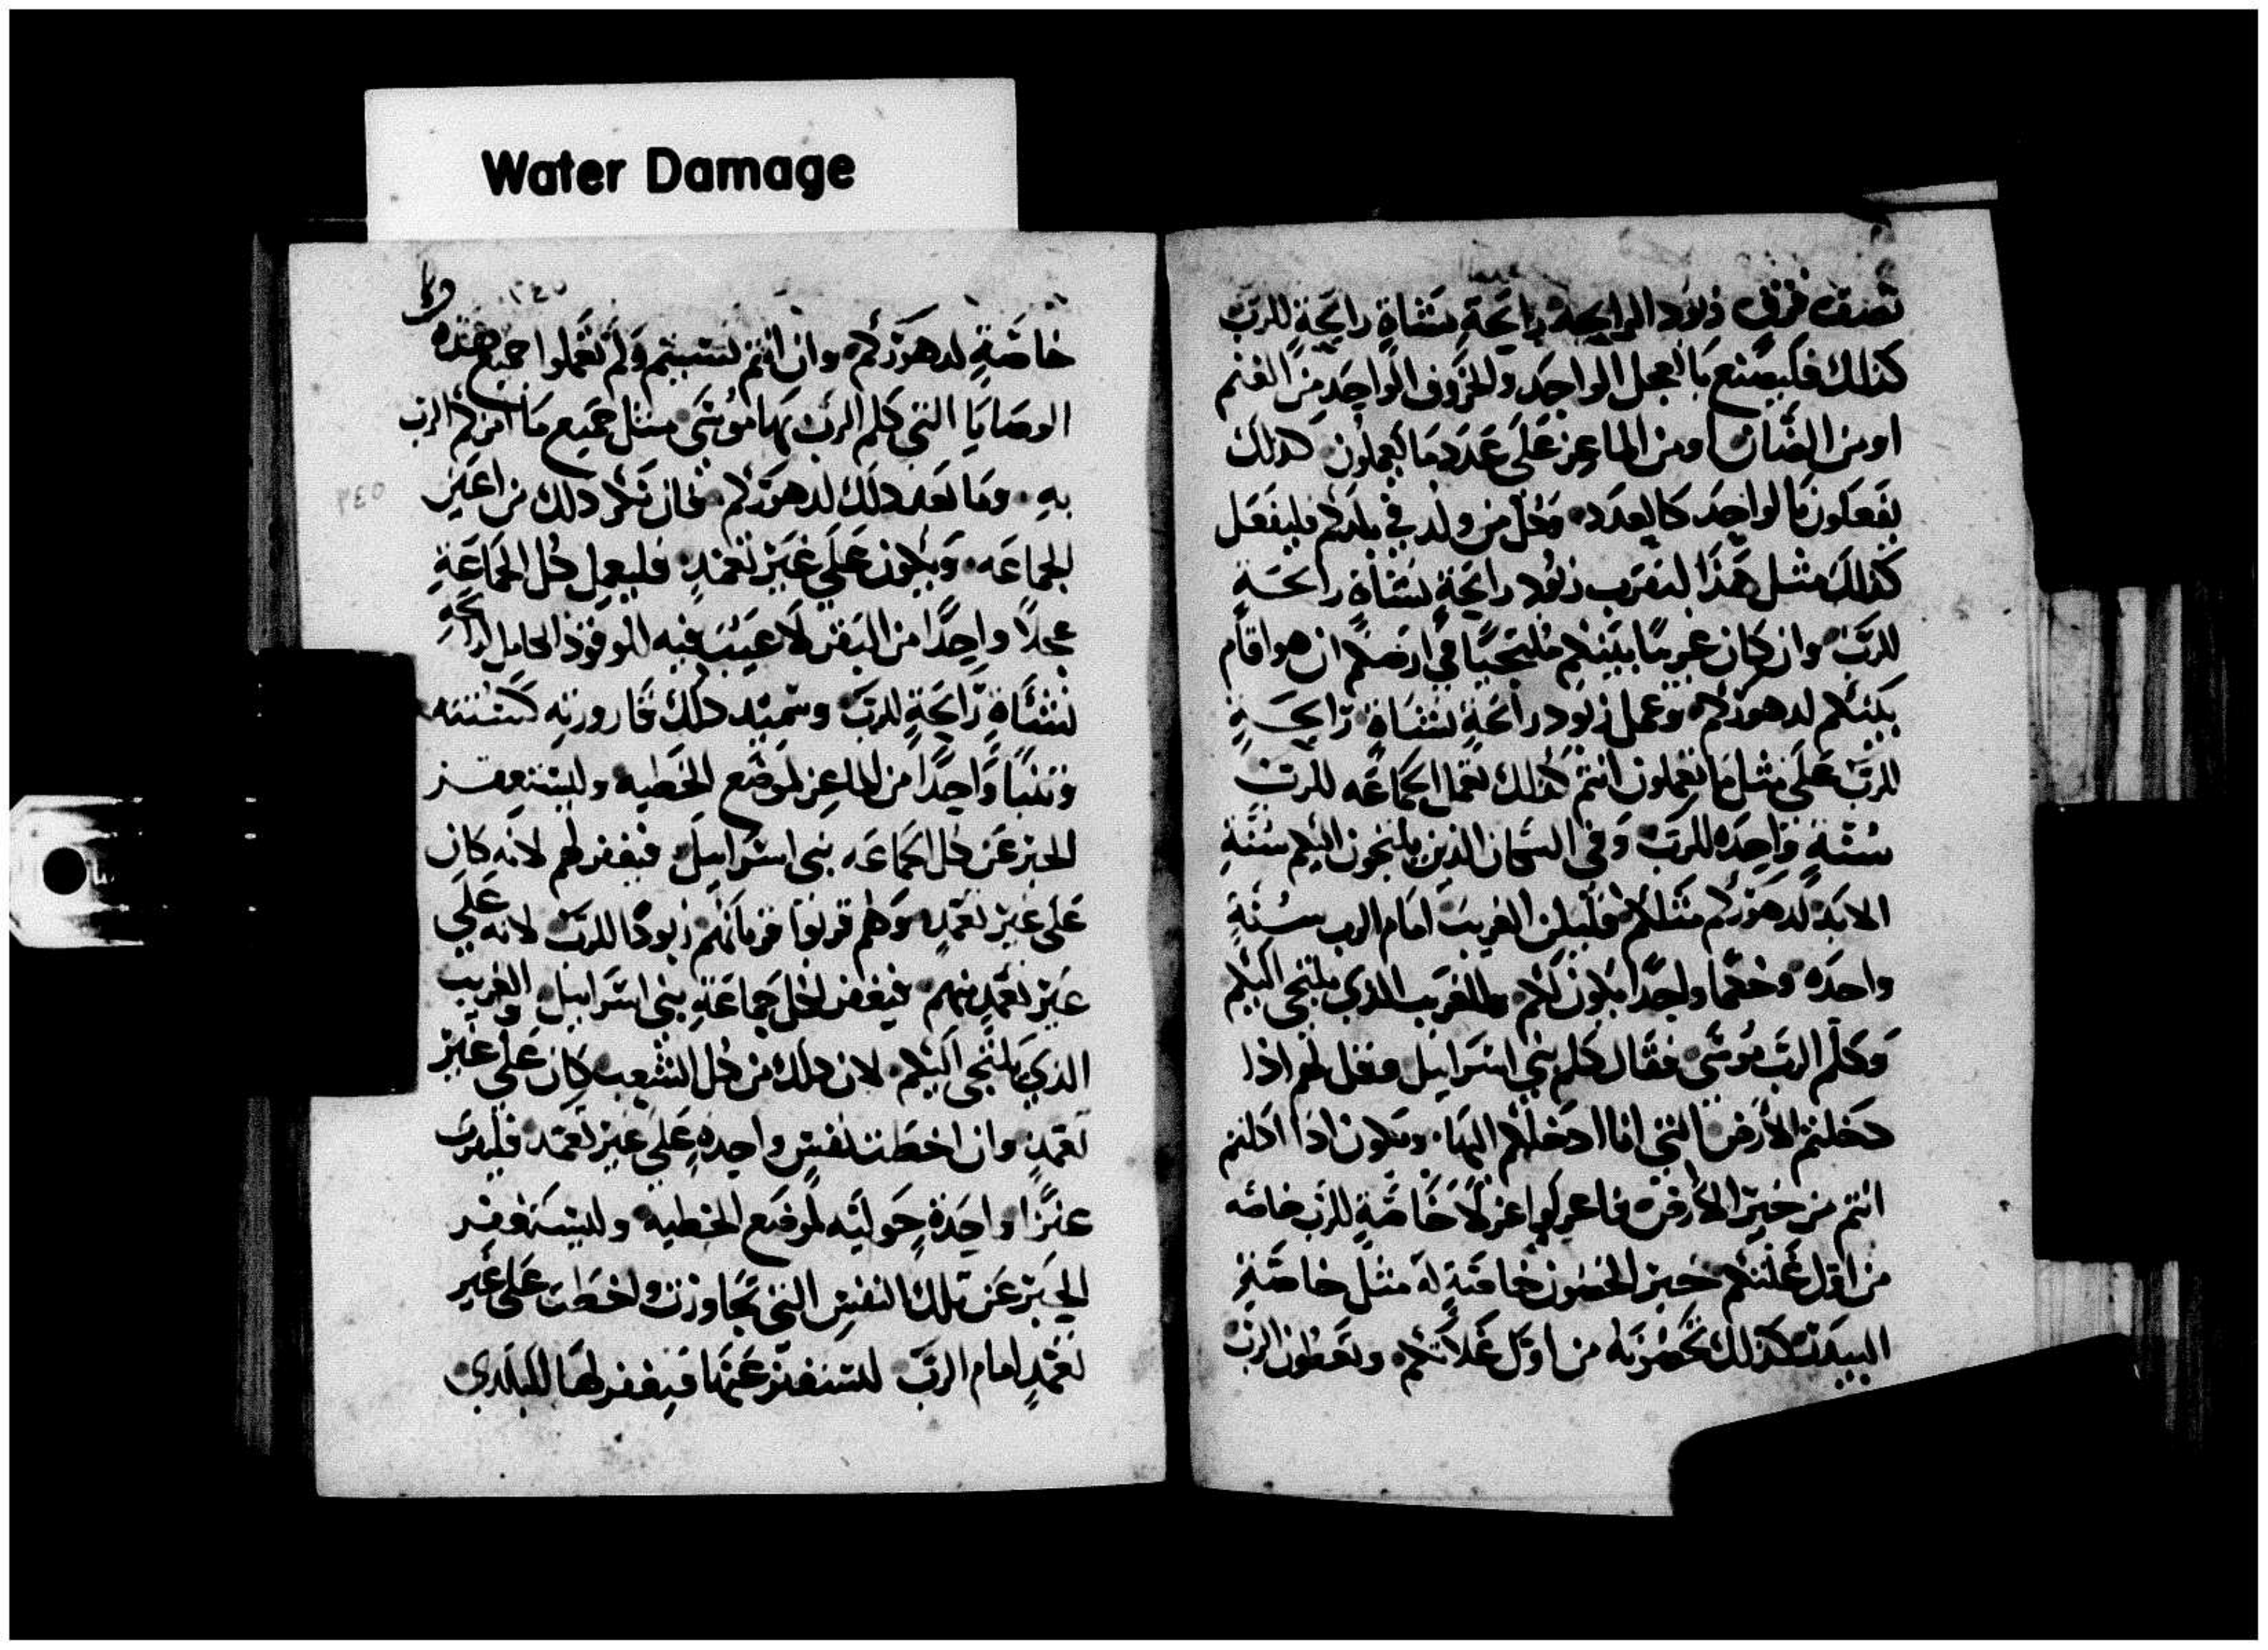 Water Damage
نصف قرفي ذلود الرايحه رايحة نشاة رايحة للرب
كذلك فليصنع بالعجل الواحد والخروف الواحد من الغنم
او من الضان او من الماعز على عدد ما يعملون كذلك
يفعلون بالواحد كالعدد وكل من ولد في بلدكم فليفعل
كذلك مثل هذا ليقرب زلود رايحة نشاة رايحة
للرب وان كان غريبا بينكم ملتجيا في ارضكم ان هو اقام
بينكم لدهوركم وعمل زلود رايحة نشاة رايحة
للرب على مثل ما تعملون انتم كذلك تعمل الجماعه للرب
سنة واحده للرب وفي السكان الذين يلتجون اليكم سنة
الابد لدهوركم مثلكم فليكن الغريب امام الرب سنة
واحده وحكما واحدا يكون لكم وللغريب الذي يلتجي اليكم
وكلم الرب موسى فقال كلم بني اسراييل وقل لهم اذا
دخلتم الارض التي انا ادخلكم اليها ويكون اذا اكلتم
انتم من خبز الارض فاعزلوا عزلا خاصة للرب خاصه
من اول غلتكم خبز الخضون خاصة له مثل خاصة
البيدر كذلك تحضرته من اول غلاتكم وتعطون الرب
٢٤٥
خاصة لدهوركم وان انتم نسيتم ولم تعملوا جميع هذه
الوصايا التي كلم الرب بها موسى مثل جميع ما امركم الرب
به وما بعد ذلك لدهوركم فان كان ذلك من اعين
الجماعه ويكون على غير تعمد فليعمل كل الجماعة
عجلا واحدا من البقر لا عيب فيه للوقود الكامل لرايحة
نشاة رايحة للرب وسميد ذلك قارورته كسنته
وتيسا واحدا من الماعز لموضع الخطيه وليستغفر
الحبر عن كل الجماعه بني اسراييل فيغفر لهم لانه كان
على غير تعمد وهم قربوا قربانهم زلودا للرب لانه على
غير تعمد منهم فيغفر لكل جماعة بني اسراييل والغريب
الذي يلتجي اليكم لان ذلك من كل الشعب كان على غير
تعمد وان اخطت نفس واحدة على غير تعمد فليقرب
عنزا واحدة حوليه لموضع الخطيه وليستغفر
الحبر عن تلك النفس التي تجاوزت واخطت على غير
تعمد امام الرب ليستغفر عنها فيغفر لها للبلدي